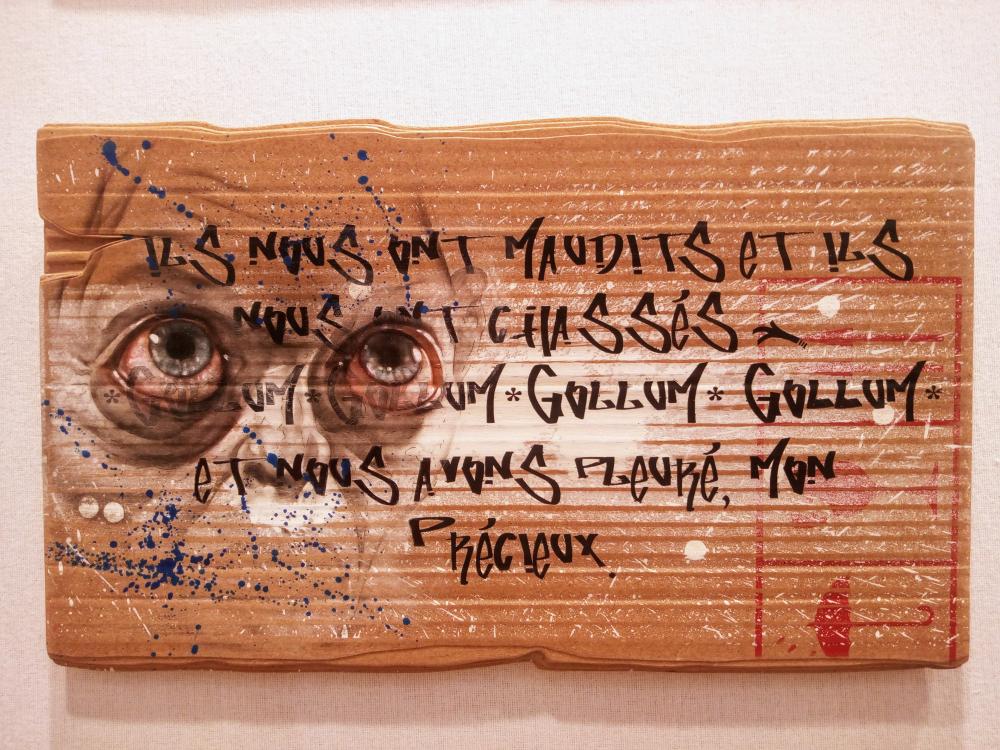 ILS NOUS ONT MAUDITS eT ILS
NOUS ONT CHASSÉS
*GOLLUM*GOLLUM*GOLLUM* GOLLUM*
eT NOUS AVONS PLeURÉ, MON
PRÉCIeUX.